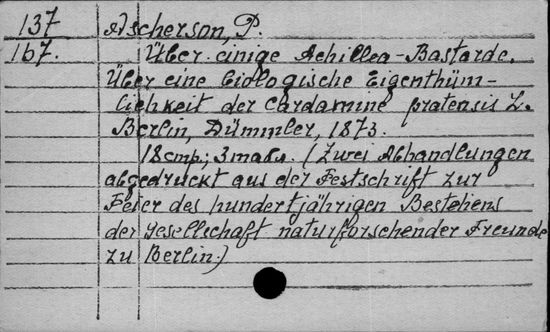 137 Ascherson, P.
167. Über einige Achillea-Bastarde.
Über eine biologische Eigenthüm-
lichkeit der Cardamine pratensis L.
Berlin, Dümmler, 1873.
18 стр.; 3 табл. (Zwei Abhandlungen
abgedruckt aus der Festschrift zur
Feier des hundertjährigen Bestehens
der Gesellschaft naturforschender Freunde
zu Berlin.)